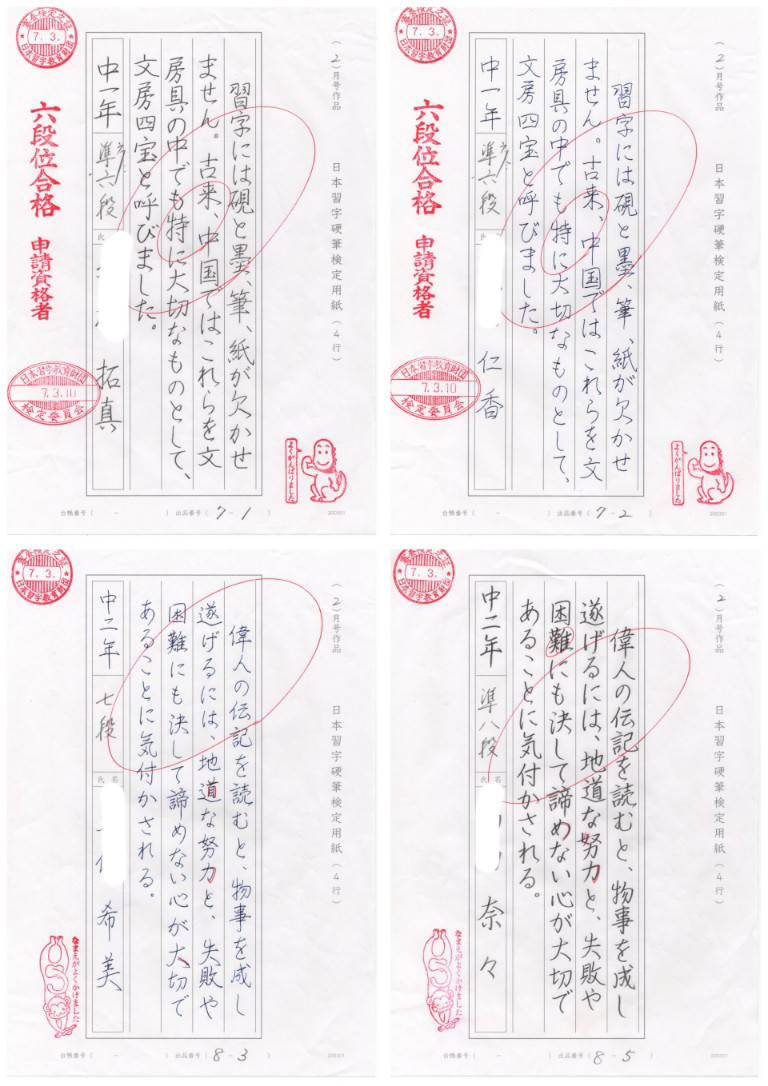 （2）月号作品
日本習字硬筆検定用紙（4行）
習字には硯と墨、筆、紙が欠かせ
ません。古来、中国ではこれらを文
房具の中でも特に大切なものとして、
文房四宝と呼びました。
中一年 準六段 氏 拓真
7.3.
日本習字教育財団
六段位合格 申請資格者
日本習字教育財団
7.3.10
検定委員会
よくがんばりました
台帳番号（ - ） 出品番号（ 7-1 ）
（2）月号作品
日本習字硬筆検定用紙（4行）
習字には硯と墨、筆、紙が欠かせ
ません。古来、中国ではこれらを文
房具の中でも特に大切なものとして、
文房四宝と呼びました。
中一年 準六段 氏 仁香
7.3.
日本習字教育財団
六段位合格 申請資格者
日本習字教育財団
7.3.10
検定委員会
よくがんばりました
台帳番号（ - ） 出品番号（ 7-2 ）
（2）月号作品
日本習字硬筆検定用紙（4行）
偉人の伝記を読むと、物事を成し
遂げるには、地道な努力と、失敗や
困難にも決して諦めない心が大切で
あることに気付かされる。
中二年 七段 氏名 希美
7.3.
日本習字教育財団
なまえがよくかけました
台帳番号（ - ） 出品番号（ 8-3 ）
（2）月号作品
日本習字硬筆検定用紙（4行）
偉人の伝記を読むと、物事を成し
遂げるには、地道な努力と、失敗や
困難にも決して諦めない心が大切で
あることに気付かされる。
中二年 準八段 氏名 奈々
7.3.
日本習字教育財団
なまえがよくかけました
台帳番号（ - ） 出品番号（ 8-5 ）